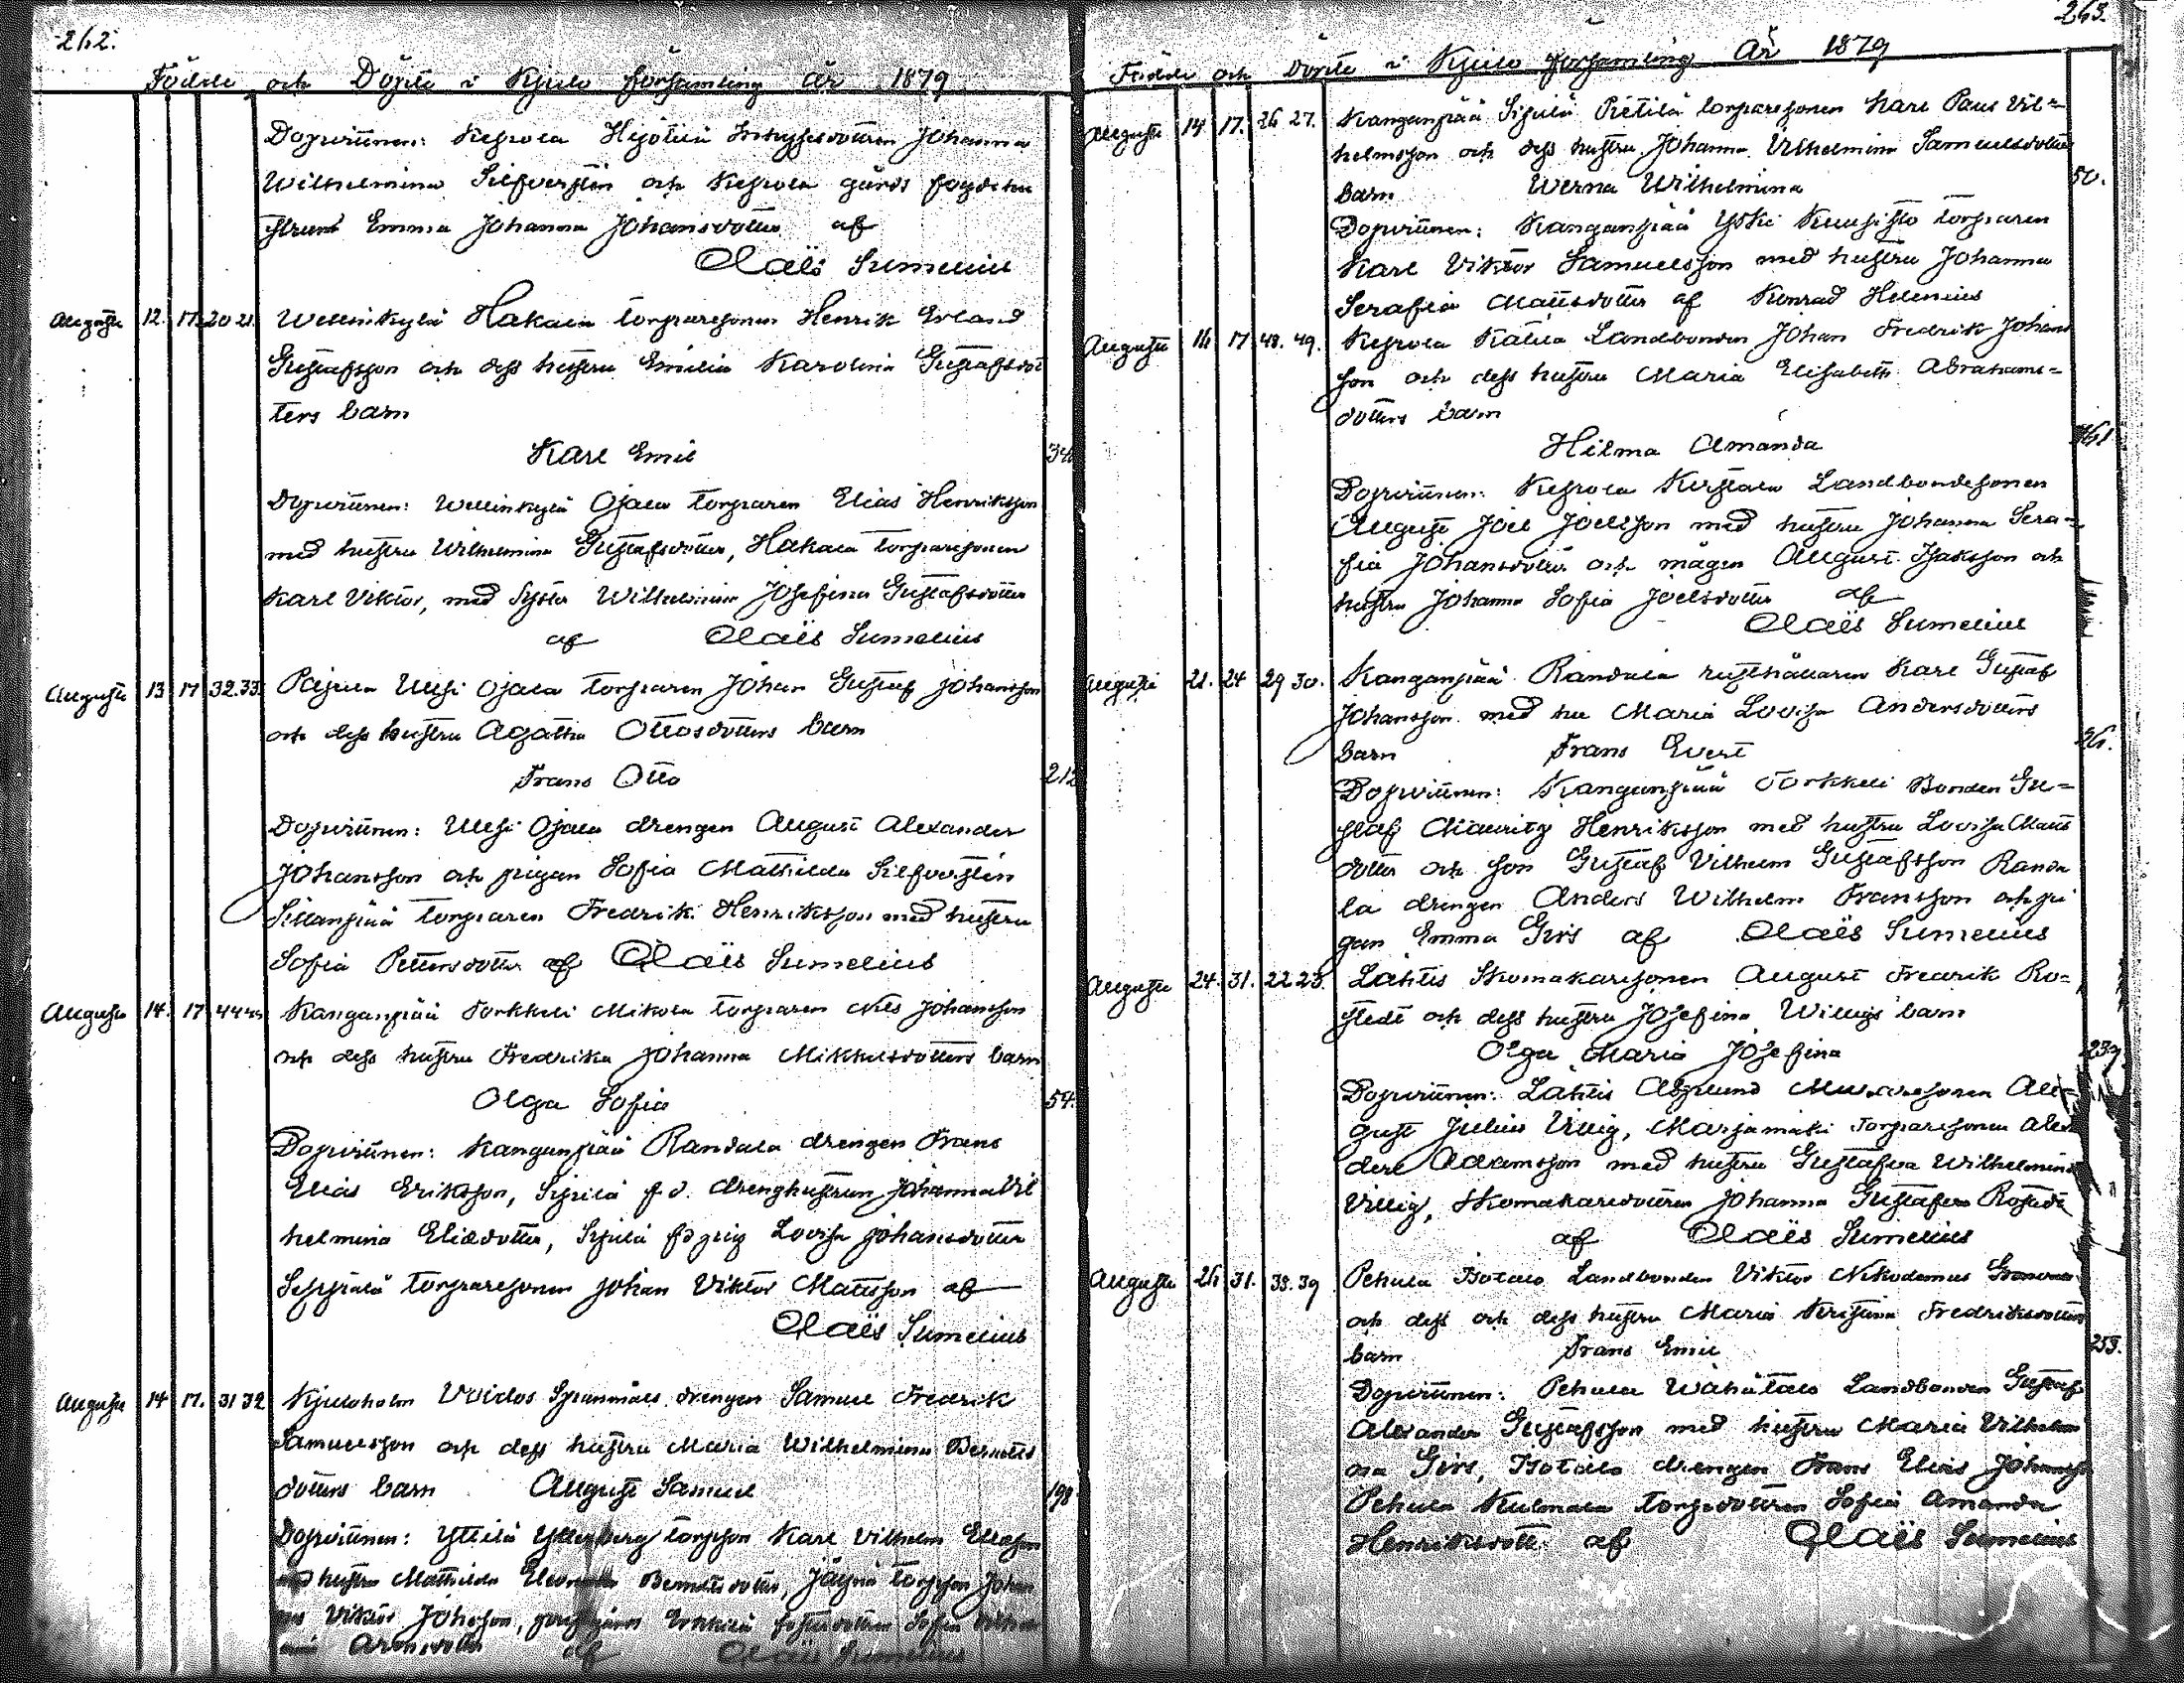 262.
Födde och Döpte i Kjulo församling år 1879
Dopvittnen: Kepola Hejotila Johanna
Wilhelmina Silfversten och Kepola gårds fogdehu
strun Emma Johanna Johansdotter af
Claës Sumelius
Augusti 12. 17. 20 21. Wellinkylä Hakala torparesonen Henrik Erland
Gustafsson och dess hustru Emilia Karolina Gustafsdot
ters barn
Karl Emil 34
Dopvittnen: Wellinkylä Ojala torparen Elias Henriksson
med hustru Wilhelmina Gustafsdotter, Hakala torparesonen
Karl Viktor, med Syster Wilhelmina Josefina Gustafsdotter
af Claës Sumelius
Augusti 13 17 32.33. Uusi Ojala torparen Johan Gustaf Johansson
och dess hustru Agatha Ottosdotters barn
Frans Otto 212
Dopvittnen: Uusi Ojala drengen August Alexander
Johansson och pigan Sofia Mathilda Silfversten
Sillanpää torparen Fredrik Henriksson med hustru
Sofia Pettersdotter af Claës Sumelius
Augusti 14. 17 44 45 Kanganpää Torkkeli Mikola torparen Nils Johansson
och dess hustru Fredrika Johanna Mikkelsdotters barn
Olga Sofia 54.
Dopvittnen: Kanganpää Randala drengen Frans
Elias Eriksson, Sipilä f.d. drenghustrun Johanna Vil
helmina Eliedotter, Sipilä Lovisa Johansdotter
Seppälä torparesonen Johan Viktor Mattsson af
Claës Sumelius
Augusti 14 17. 31 32 Kjuloholm Voidos Spannmåls drengen Samuel Fredrik
Samuelsson och dess hustru Maria Wilhelmina Berndts
dotters barn August Samuel 198
Dopvittnen: Yttilä torpson Karl Vilhelm
med hustru Mathilda Berndtsdotter, torpson Johan
Viktor Johsson, Sofia
Aronsdotter af Claës Sumelius
263.
Födde och Döpte i Kjulo församling År 1879
Augusti 14 17. 26 27. Kanganpää Sipilä Pietilä torparesonen Karl Paul Vil=
helmsson och dess hustru Johanna Vilhelmina Samuelsdotter
barn Werna Wilhelmina 50.
Dopvittnen: Kanganpää Yski Kuusisto torparen
Karl Viktor Samuelsson med hustru Johanna
Serafia Mattsdotter af Konrad Helenius
Augusti 16 17 48. 49. Kepola Katila Landbonden Johan Fredrik Johans
son och dess hustru Maria Elisabeth Abrahams=
dotters barn
Hilma Amanda 161
Dopvittnen: Kepola Kerstala Landbondesonen
August Joel Joelsson med hustru Johanna Sera=
fia Johansdotter och mågen August Isaksson och
hustru Johanna Sofia Joelsdotter af
Claës Sumelius
Augusti 21. 24 29 30. Kanganpää Randala rusthållaren Karl Gustaf
Johansson med hu Maria Lovisa Andersdotters
barn Frans Evert 26.
Dopvittnen: Kanganpää Torkkeli Bonden Gu=
staf Mauritz Henriksson med hustru Lovisa Matts
dotter och son Gustaf Vilhelm Gustafsson Randa
la drengen Anders Wilhelm Fransson och pi
gan Emma Girs af Claës Sumelius
Augusti 24. 31. 22 23. Lähtis Skomakaresonen August Fredrik Ro=
stedt och dess hustru Josefina Willigs barn
Olga Maria Josefina 239
Dopvittnen: Lähtis Asplund Muraresonen Au=
gust Julius Villig, Marjamäki Torparesonen
Adamsson med hustru Gustafva Wilhelmina
Villig, Skomakaredottren Johanna Gustafva Rostedt
af Claës Sumelius
Augusti 26 31. 38. 39 Pehula Isotalo Landbonden Viktor Nikodemus
och dess och dess hustru Maria Kristina Fredriksdotters
barn Frans Emil 253.
Dopvittnen: Pehula Wähätalo Landbonden Gustaf
Alexander Gustafsson med hustru Maria Vilhelm
ina Girs, Isotalo drengen Frans Elias Johansson
Pehula Kulmala torpdottren Sofia Amanda
Henriksdott. af Claës Sumelius